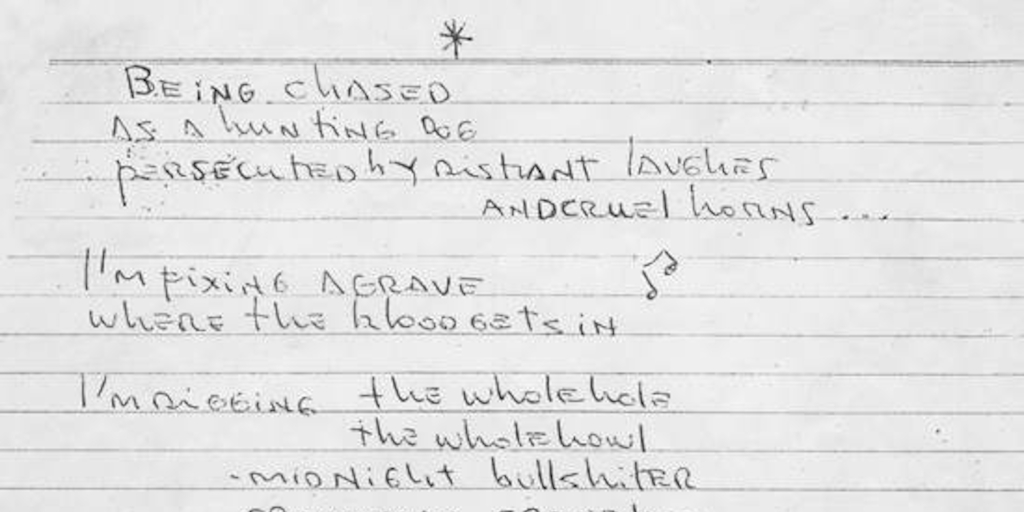 *
BEING CHASED
AS A hUNTING DOG
PERSECUTED bY DISTANT LAUGHES
AND CRUEL hORNS ...
I'M FIXING A GRAVE
WhERE the blOOD GETS IN
I'M DIGGING the whole hole
the whole howl
-MIDNIGht bullshitER